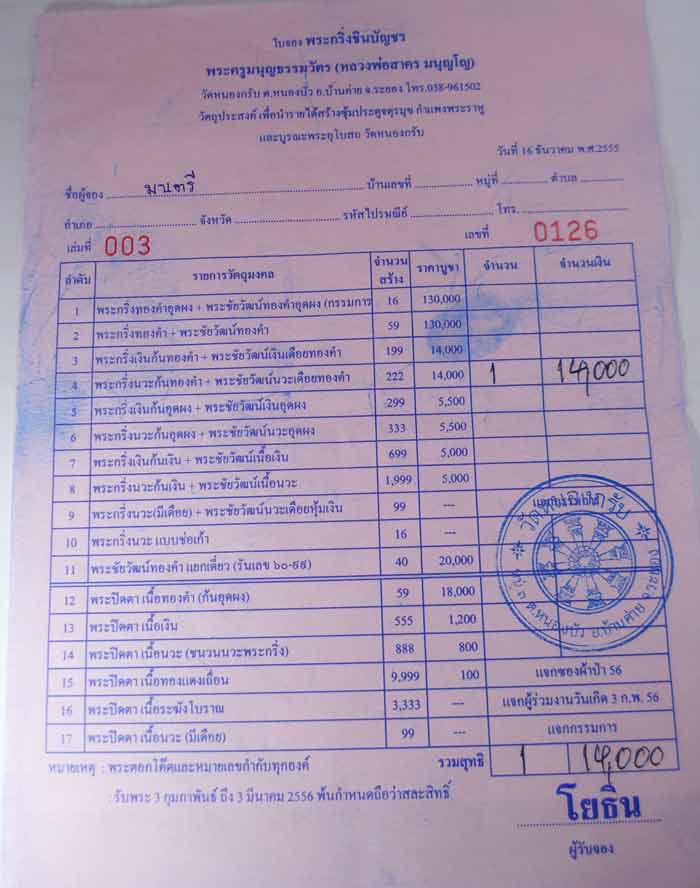 ใบจอง พระกริ่งชินบัญชร
พระครูมนุญธรรมวัตร (หลวงพ่อสาคร มนุญโญ)
วัดหนองกรับ ต.หนองบัว อ.บ้านค่าย จ.ระยอง โทร.038-961502
วัตถุประสงค์ เพื่อนำรายได้สร้างซุ้มประตูจตุรมุข กำแพงพระราหู
และบูรณะพระอุโบสถ วัดหนองกรับ
วันที่ 16 ธันวาคม พ.ศ.2555
ชื่อผู้จอง มนตรี บ้านเลขที่ หมู่ที่ ตำบล
อำเภอ จังหวัด รหัสไปรษณีย์ โทร.
เล่มที่ 003 เลขที่ 0126
ลำดับ รายการวัตถุมงคล จำนวนสร้าง ราคาบูชา จำนวน จำนวนเงิน
1 พระกริ่งทองคำอุดผง + พระชัยวัฒน์ทองคำอุดผง (กรรมการ 16 130,000
2 พระกริ่งทองคำ + พระชัยวัฒน์ทองคำ 59 130,000
3 พระกริ่งเงินก้นทองคำ + พระชัยวัฒน์เงินเดือยทองคำ 199 14,000
4 พระกริ่งนวะก้นทองคำ + พระชัยวัฒน์นวะเดือยทองคำ 222 14,000 1 14,000
5 พระกริ่งเงินก้นอุดผง + พระชัยวัฒน์เงินอุดผง 299 5,500
6 พระกริ่งนวะก้นอุดผง + พระชัยวัฒน์นวะอุดผง 333 5,500
7 พระกริ่งเงินก้นเงิน + พระชัยวัฒน์เนื้อเงิน 699 5,000
8 พระกริ่งนวะก้นเงิน + พระชัยวัฒน์เนื้อนวะ 1,999 5,000
9 พระกริ่งนวะ(มีเดือย) + พระชัยวัฒน์นวะเดือยหุ้มเงิน 99 ---
10 พระกริ่งนวะ แบบช่อเก้า 16 ---
11 พระชัยวัฒน์ทองคำ แยกเดี่ยว (รันเลข ๖๐-๙๙) 40 20,000
12 พระปิดตา เนื้อทองคำ (ก้นอุดผง) 59 18,000
13 พระปิดตา เนื้อเงิน 555 1,200
14 พระปิดตา เนื้อนวะ (ชนวนนวะพระกริ่ง) 888 800
15 พระปิดตา เนื้อทองแดงเถื่อน 9,999 100 แจกซองผ้าป่า 56
16 พระปิดตา เนื้อระฆังโบราณ 3,333 --- แจกผู้ร่วมงานวันเกิด 3 ก.พ. 56
17 พระปิดตา เนื้อนวะ (มีเดือย) 99 --- แจกกรรมการ
หมายเหตุ : พระตอกโค๊ตและหมายเลขกำกับทุกองค์ รวมสุทธิ 1 14,000
: รับพระ 3 กุมภาพันธ์ ถึง 3 มีนาคม 2556 พ้นกำหนดถือว่าสละสิทธิ์
โยธิน
ผู้รับจอง